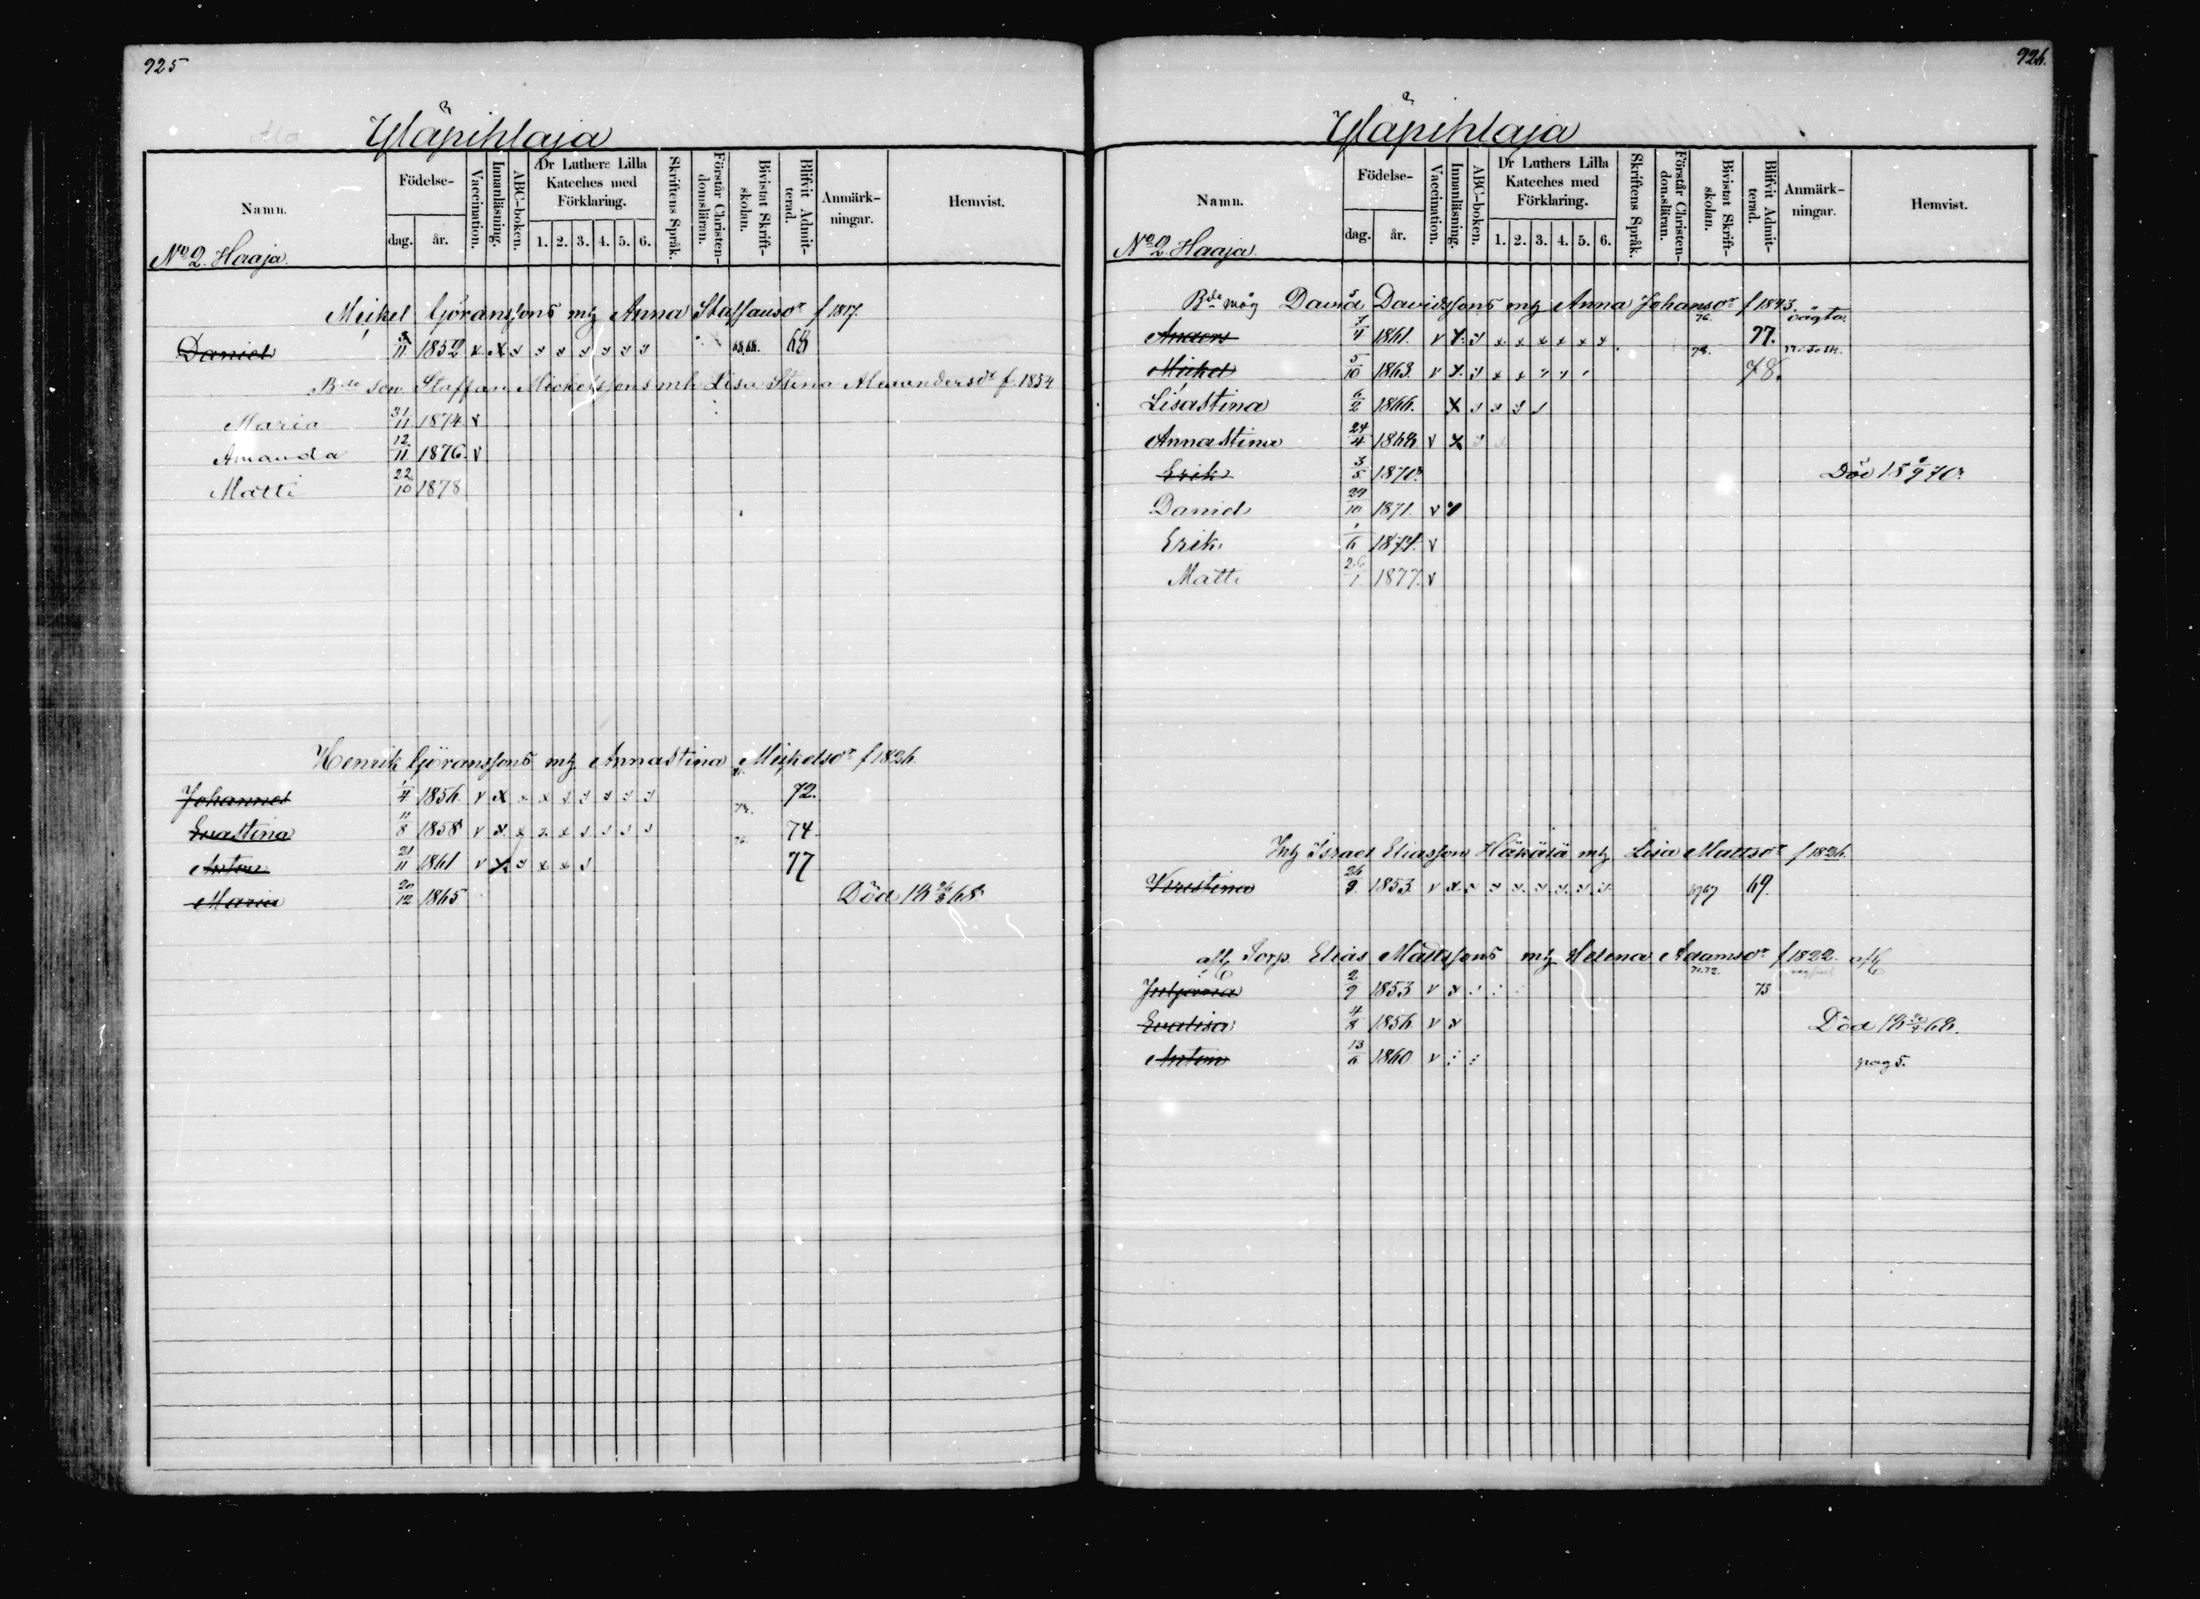 925
Yläpihlaja
Namn.
Födelse-
dag. år.
Vaccination.
Innanläsning.
ABC-boken.
Dr Luthers Lilla Kateches med Förklaring.
1. 2. 3. 4. 5. 6.
Skriftens Språk.
Förstår Christendomsläran.
Bivistat Skriftskolan.
Blifvit Admitterad.
Anmärkningar.
Hemvist.
No 2. Haaja.
Mickel Göranssons mh Anna Staffansdr f 1817.
Daniel 3/11 1852 68
Bde son Staffan Mickelssons mh Lisa Stina Alexandersdr f. 1854
Maria 31/11 1874 v
Amanda 12/11 1876 v
Matti 22/10 1878
Henrik Göranssons mh Annastina Mickelsdr f 1826.
Johannes 1/4 1856 v x 72.
Evastina 11/8 1858 v x 74.
Anton 21/11 1861 v x 77
Maria 20/12 1865 Död 18 68
926.
Yläpihlaja
Namn.
Födelse-
dag. år.
Vaccination.
Innanläsning.
ABC-boken.
Dr Luthers Lilla Kateches med Förklaring.
1. 2. 3. 4. 5. 6.
Skriftens Språk.
Förstår Christendomsläran.
Bivistat Skriftskolan.
Blifvit Admitterad.
Anmärkningar.
Hemvist.
No 2. Haaja.
Bde måg David Davidssons mh Anna Johansdr f 1843.
Anders 1861. v 76. 77.
Mickel 5/10 1863. v 78. 78.
Lisastina 6/2 1866. x
Annastina 24/4 1868 v x
Erik 3/5 1870. Död 18 70.
Daniel 29/10 1871. v
Erik 1/6 1874. v
Matti 26/1 1877. v
Israel Eliasson Häkälä mh Lisa Mattsdr f 1826.
Kristina 26/9 1853. v 69.
Torp. Elias Mattssons mh Helena Adamsdr f 1822.
2/9 1853 v 71.72. 73
Evalisa 4/8 1856 v Död 18 68.
Anton 13/6 1860 v pag 5.